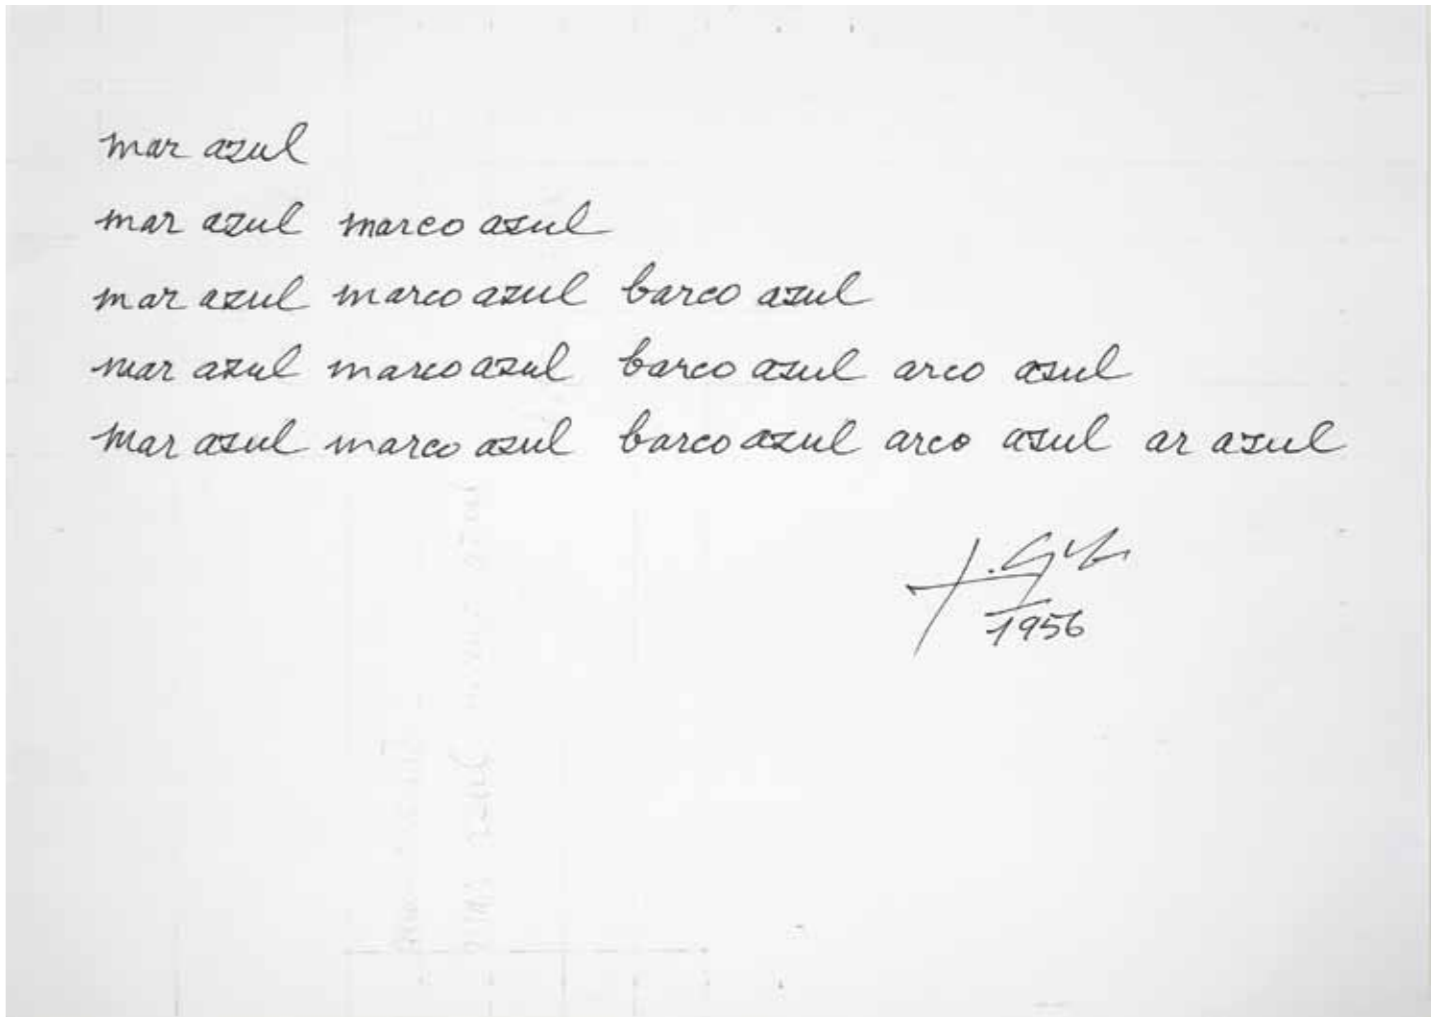 mar azul
mar azul marco azul
mar azul marco azul barco azul
mar azul marco azul barco azul arco azul
mar azul marco azul barco azul arco azul ar azul
1956